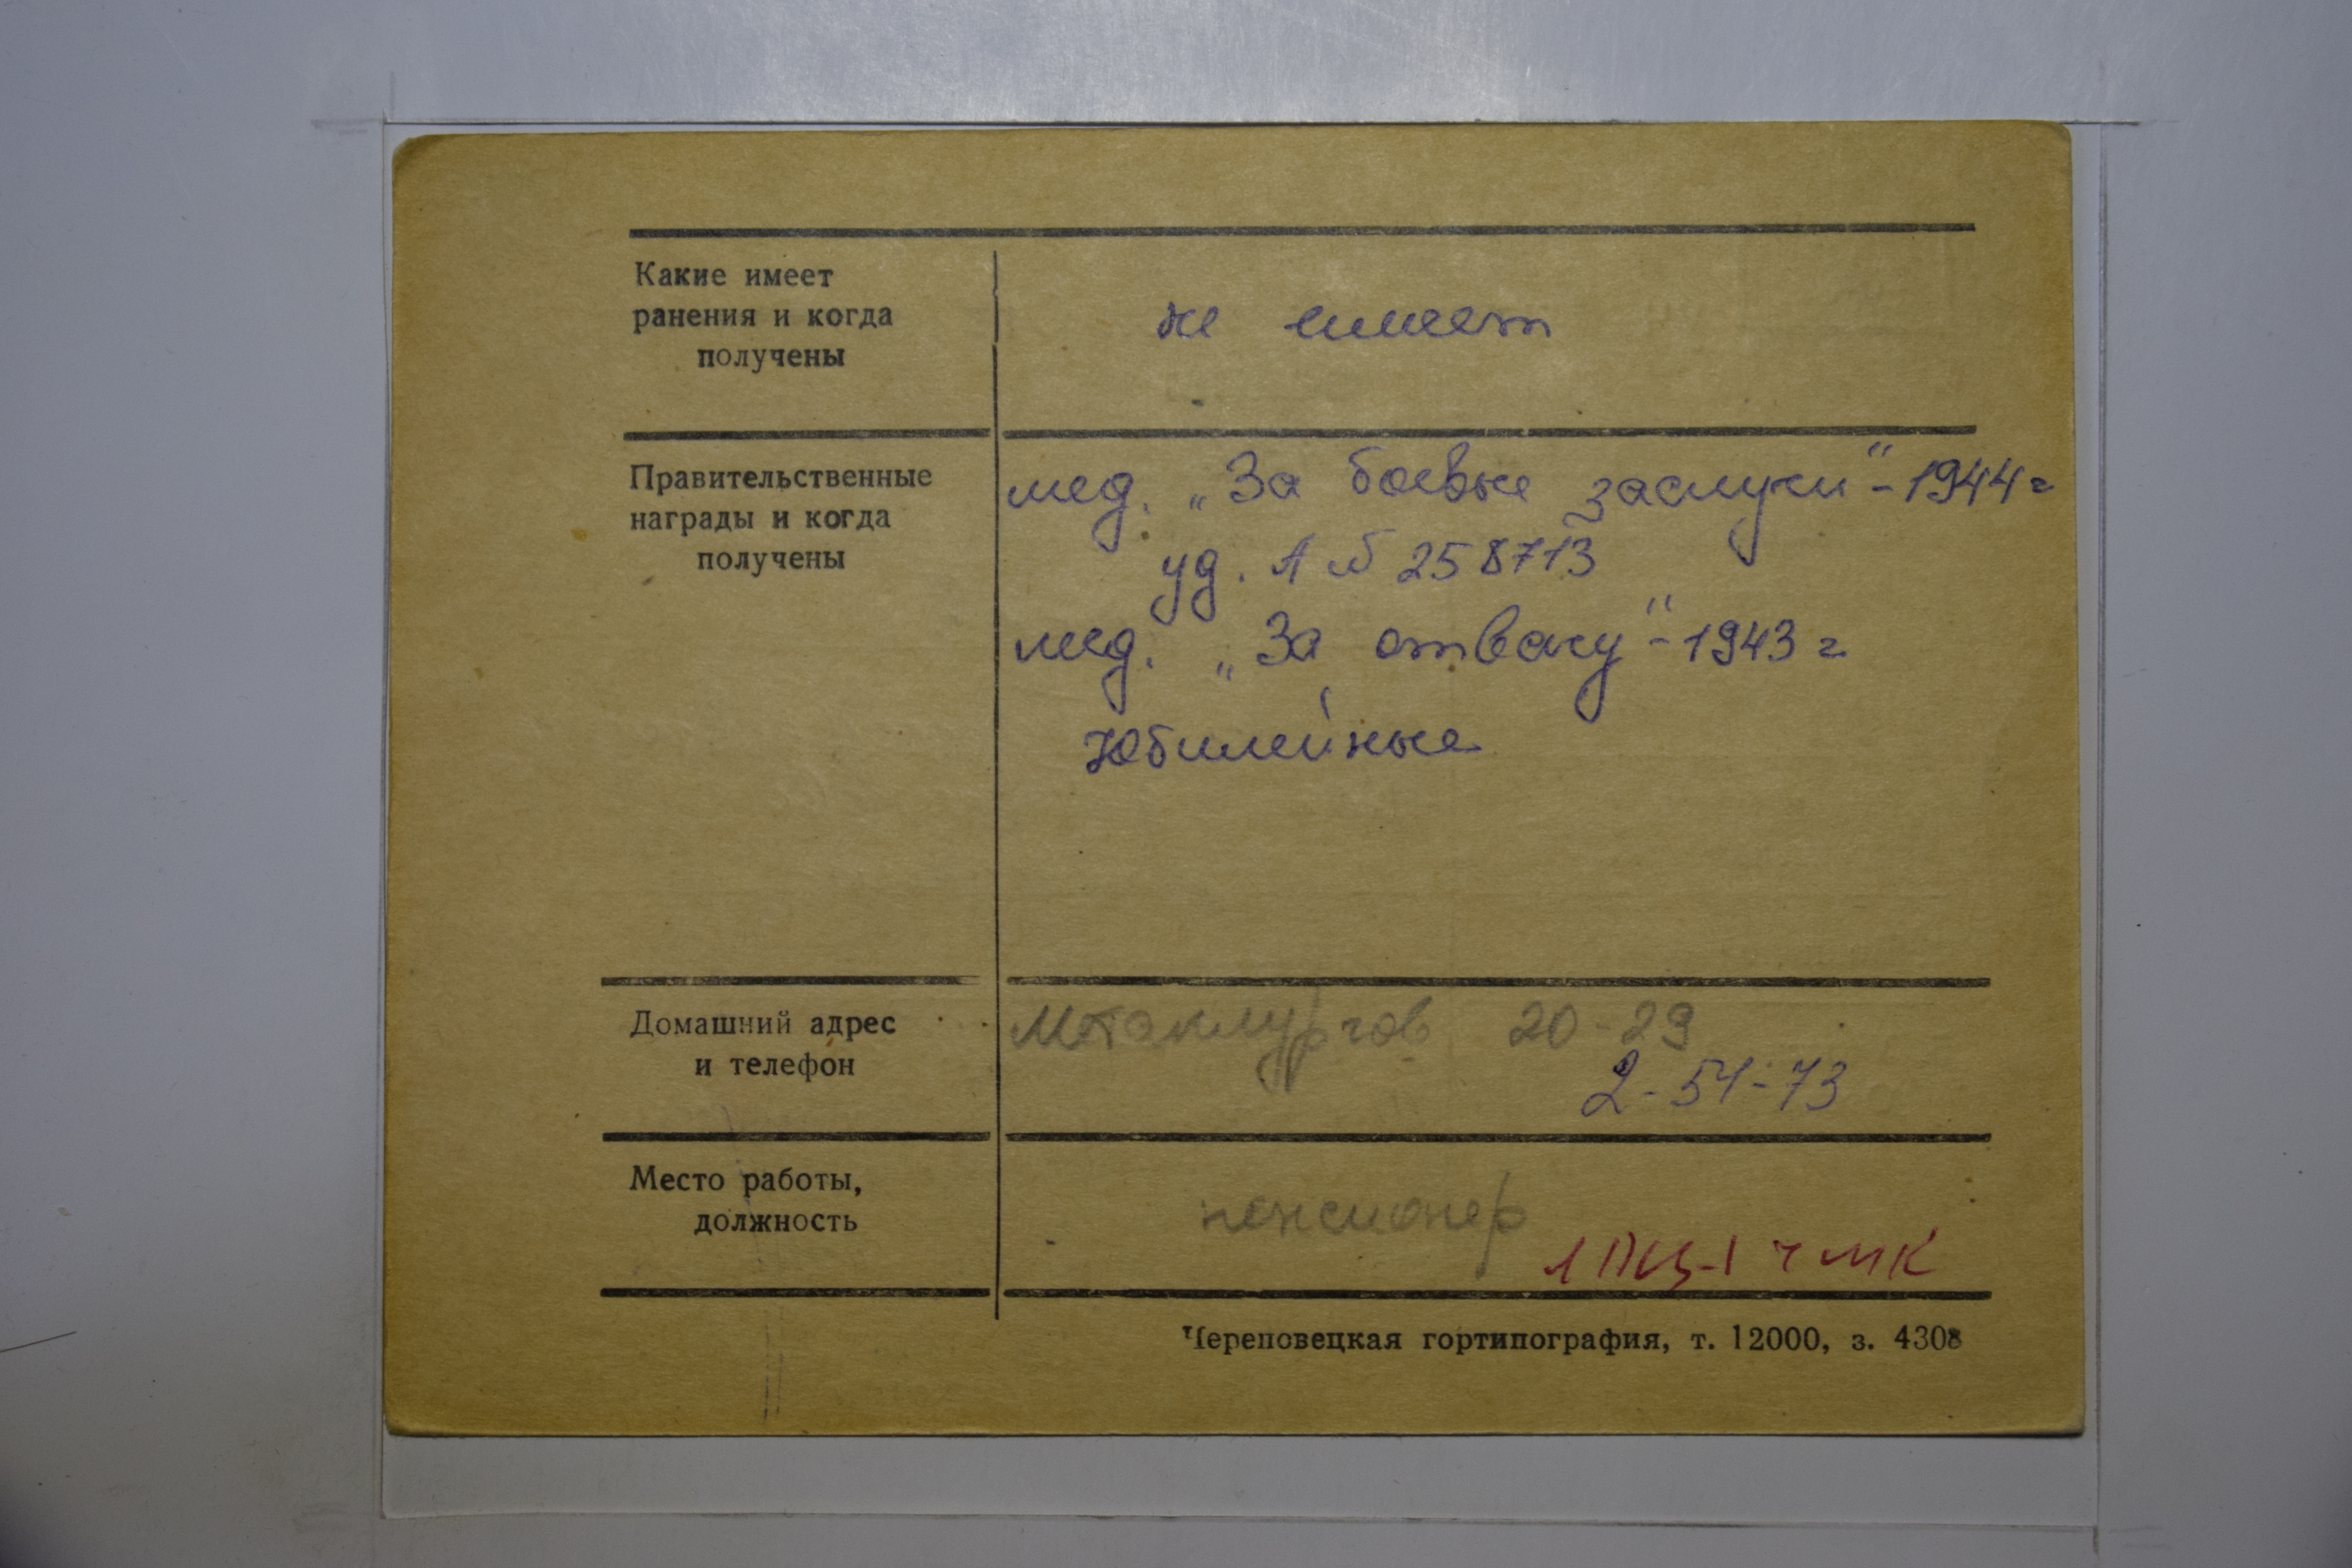 Какие имеет
ранения и когда
получены
не имеет
Правительственные
награды и когда
получены
мед. „За боевые заслуги" - 1944 г
уд. А № 258713
мед. „За отвагу" - 1943 г.
Юбилейные
Домашний адрес
и телефон
Металлургов 20-29
2-51-73
Место работы,
должность
пенсионер
ЛПЦ-1 ЧМК
Череповецкая гортипография, т. 12000, з. 4308